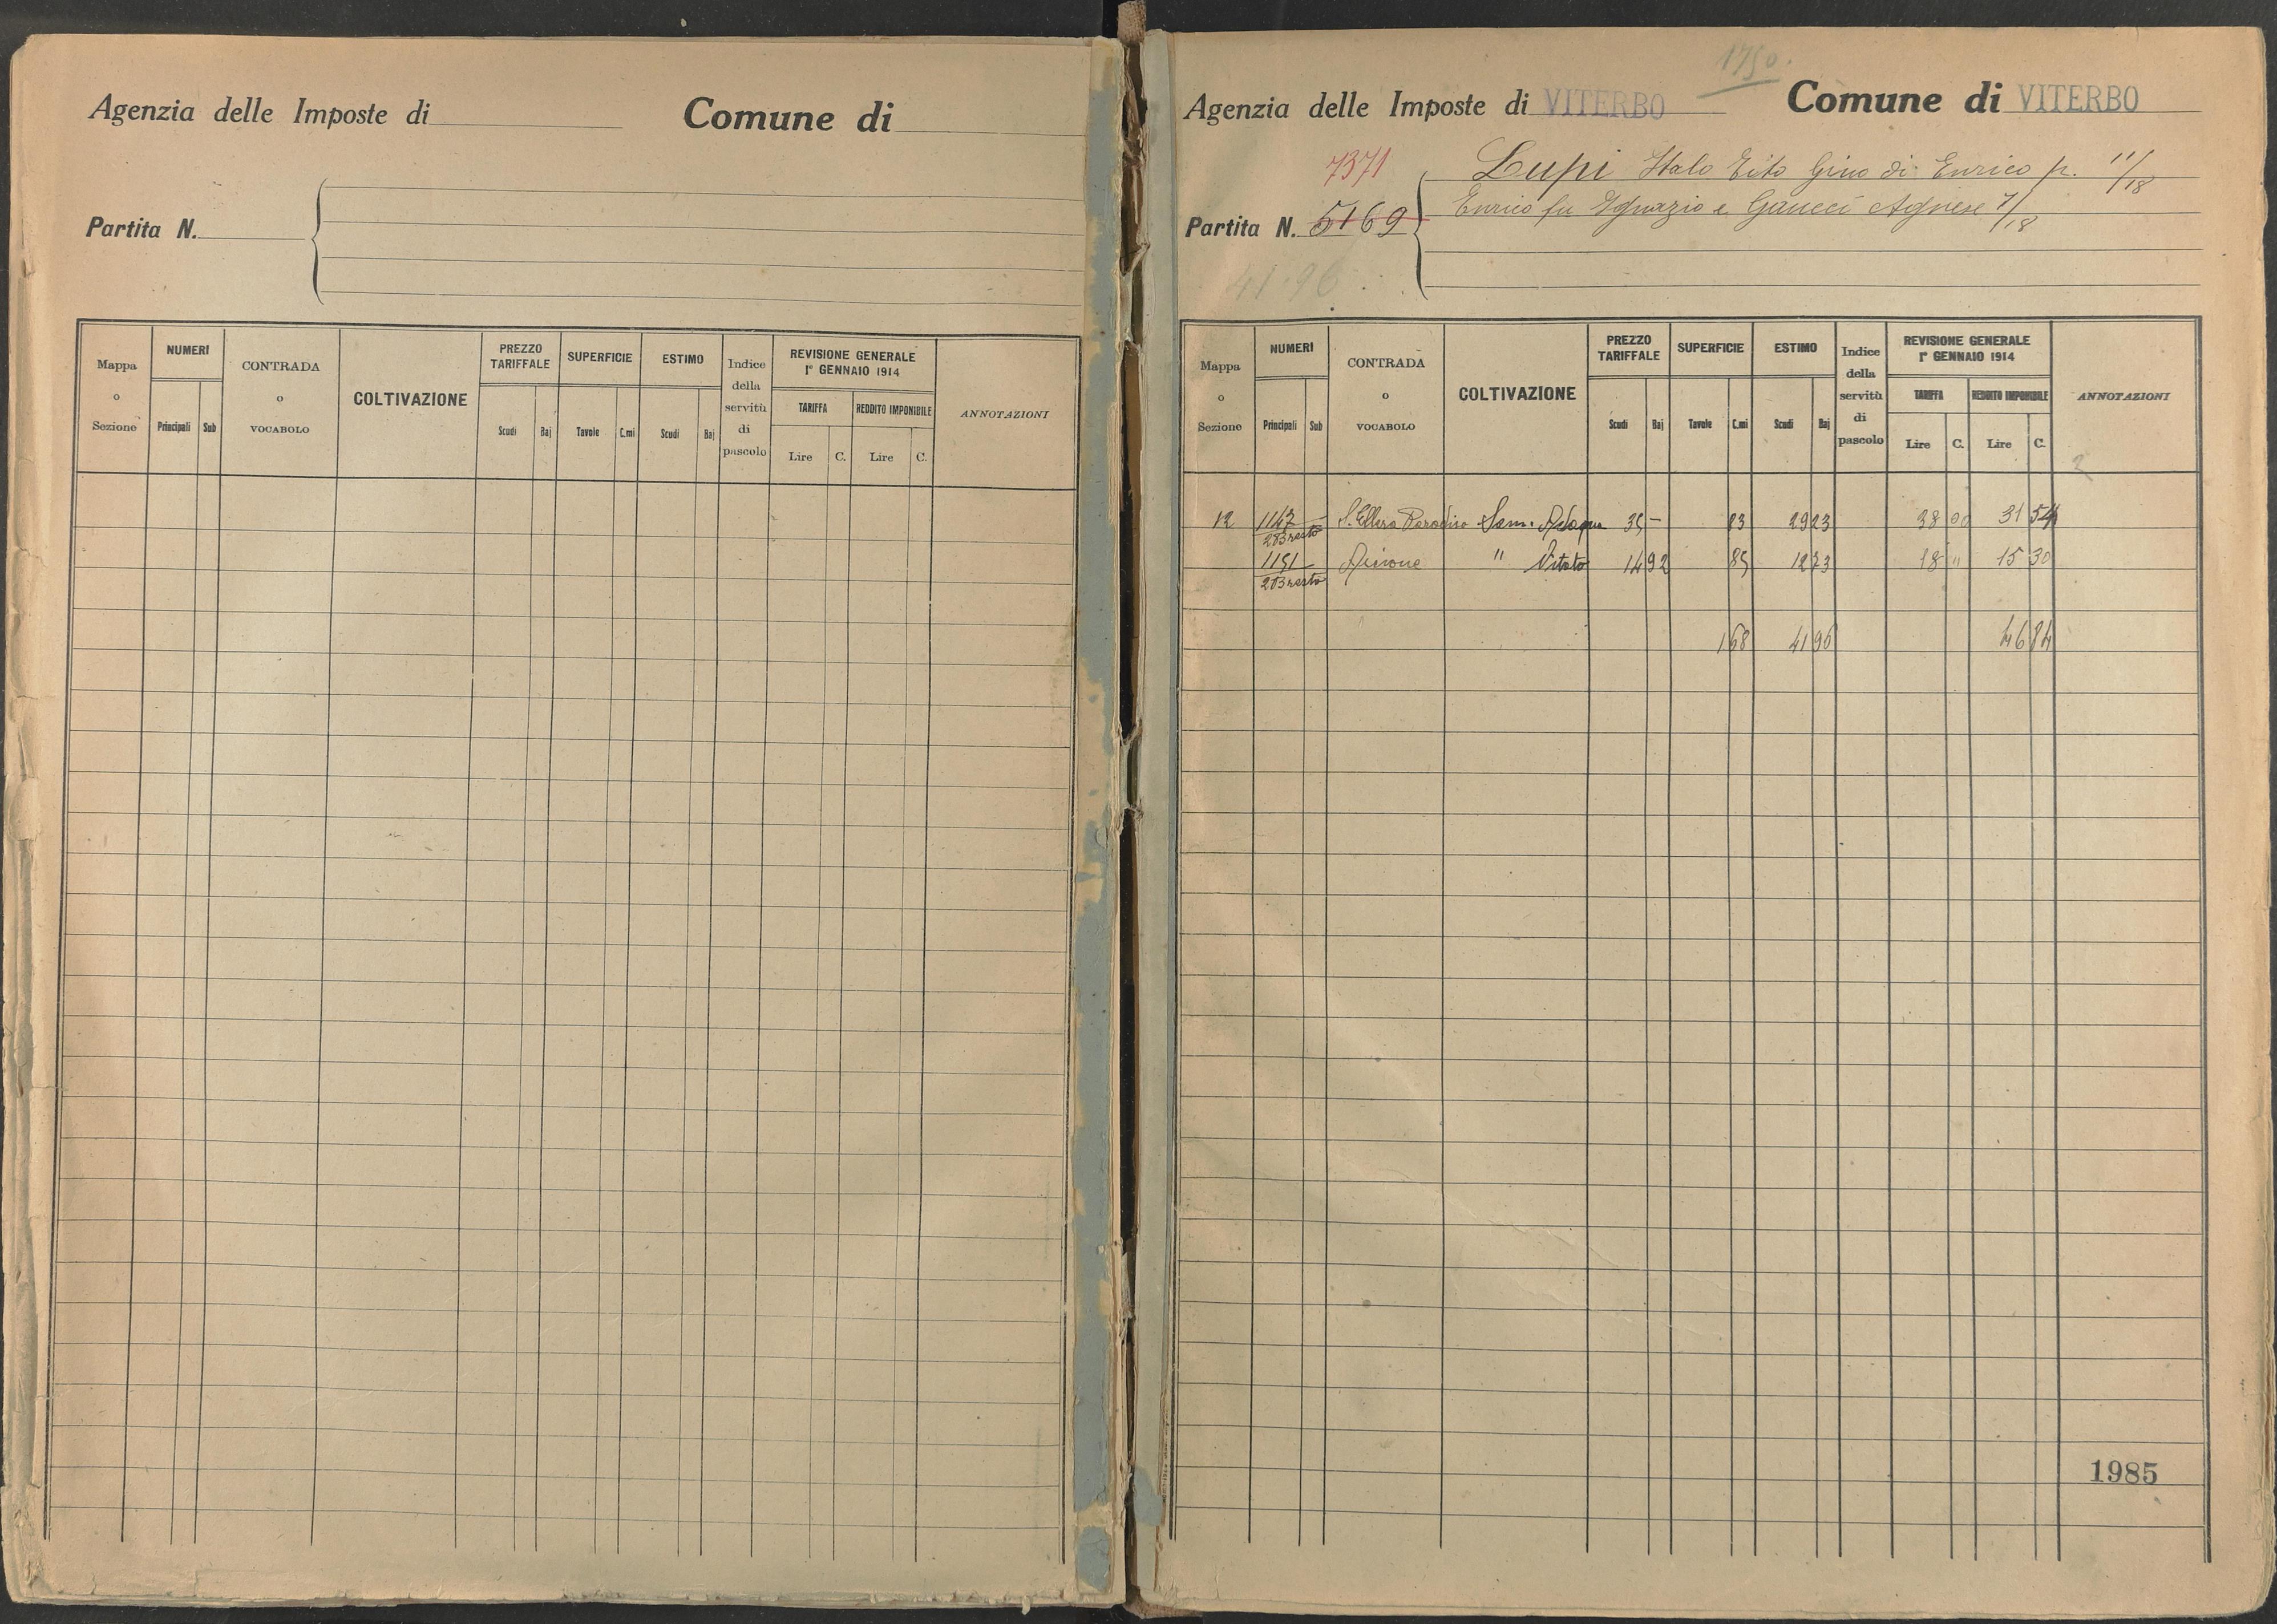 Agenzia delle Imposte di Comune di
Partita N.
Mappa o Sezione NUMERI Principali Sub CONTRADA o VOCABOLO COLTIVAZIONE PREZZO TARIFFALE Scudi Baj SUPERFICIE Tavole C.mi ESTIMO Scudi Baj Indice della servitù di pascolo REVISIONE GENERALE 1° GENNAIO 1914 TARIFFA Lire C. REDDITO IMPONIBILE Lire C. ANNOTAZIONI
1750.
Agenzia delle Imposte di VITERBO Comune di VITERBO
7371
Lupi Italo Tito Gino di Enrico p. 11/18
Partita N. 5169
Enrico fu Ignazio e Agnese 7/18
41.96
Mappa o Sezione NUMERI Principali Sub CONTRADA o VOCABOLO COLTIVAZIONE PREZZO TARIFFALE Scudi Baj SUPERFICIE Tavole C.mi ESTIMO Scudi Baj Indice della servitù di pascolo REVISIONE GENERALE 1° GENNAIO 1914 TARIFFA Lire C. REDDITO IMPONIBILE Lire C. ANNOTAZIONI
12 1147 Sem. 35 – 83 29 23 38 00 31 54
283 resto
1151 " Vitato 14 92 85 12 73 18 " 15 30
283 resto
1 68 41 96 46 84
1985